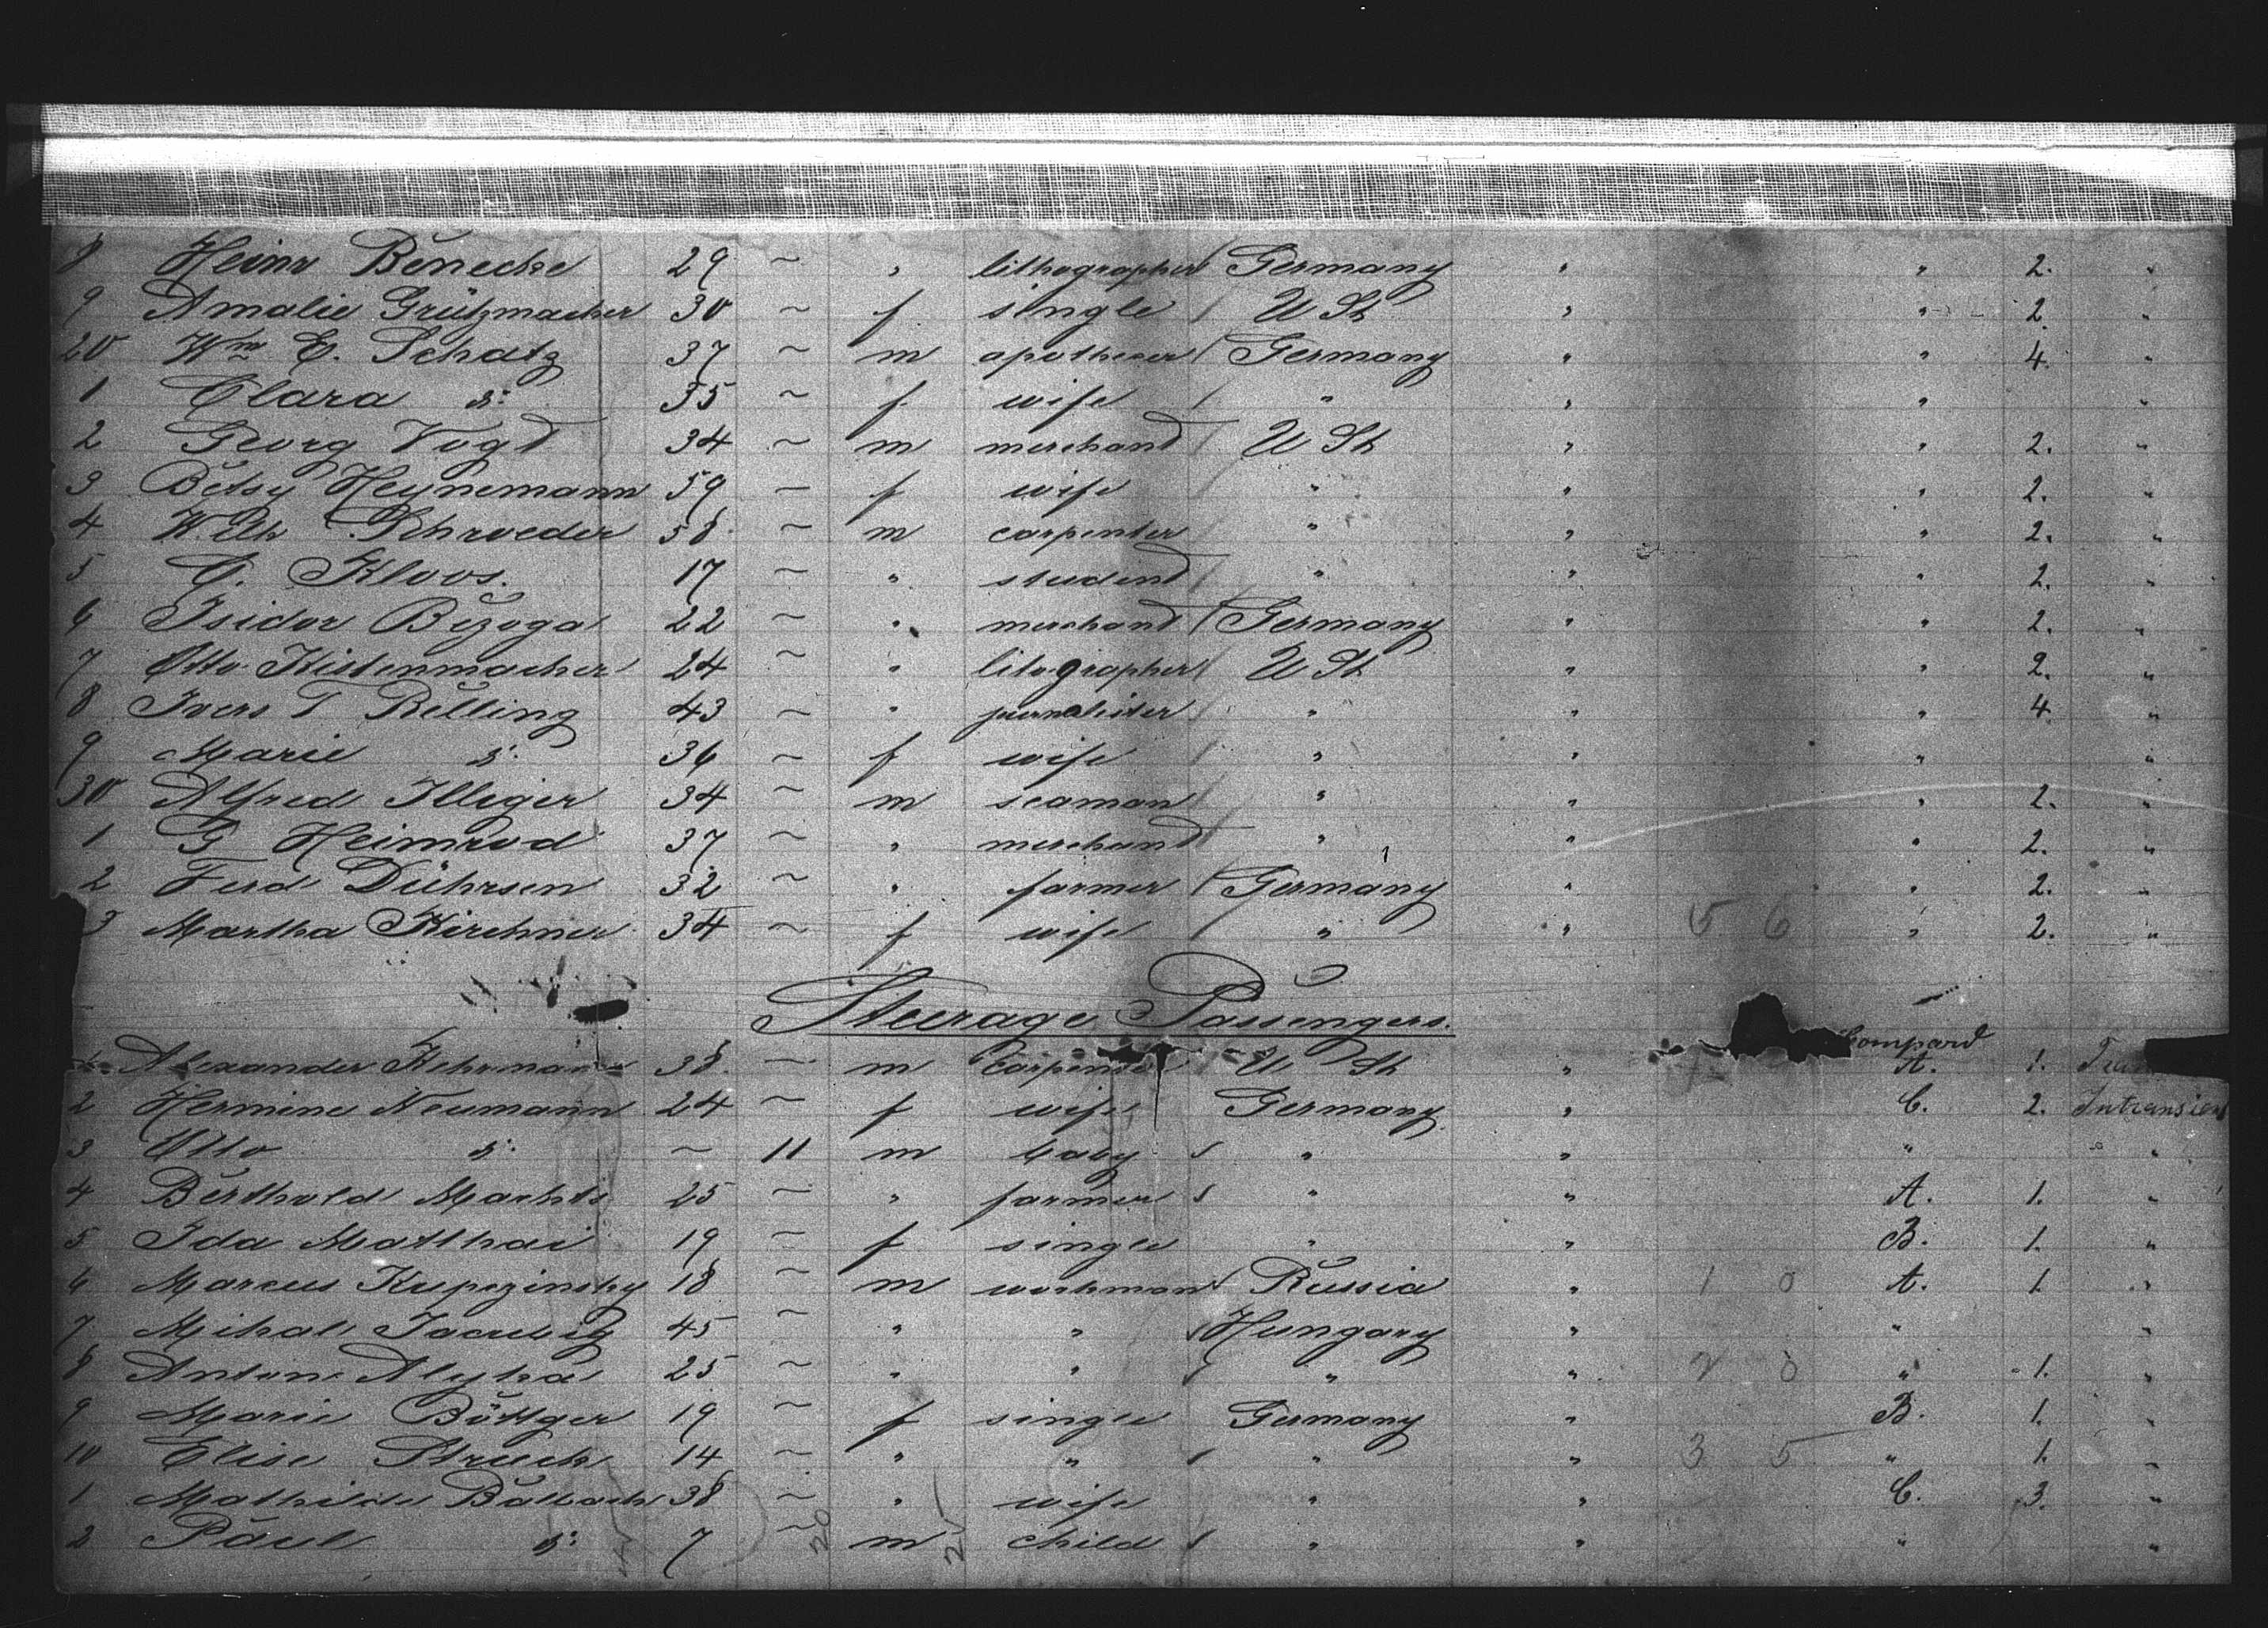 8 Heinr Benecke 29 ~ " lithographer Germany " " 2. "
9 Amalie Grützmacher 30 ~ f single U St " " 2. "
20 Wm E. Schatz 37 ~ m apotheker Germany " " 4. "
1 Clara d: 35 ~ f wife " " " "
2 Georg Vogt 34 ~ m merchand U St " " 2. "
3 Betsy Heynemann 59 ~ f wife " " " 2. "
4 Wilh Schroeder 58 ~ m carpenter " " " 2. "
5 C. Kloos. 17 ~ " student " " " 2. "
6 Isidor Bezoga 22 ~ " merchand Germany " " 2. "
7 Otto Kistenmacher 24 ~ " litographer U St " " 2. "
8 Ivers T Relling 43 ~ " " " " 4. "
9 Marie d: 36 ~ f wife " " " "
30 Alfred Illiger 34 ~ m seaman " " " 2. "
1 G Heimrod 37 ~ " merchand " " " 2. "
2 Ferd Dührsen 32 ~ " farmer Germany " " 2. "
3 Martha Kirchner 34 ~ f wife " " 5 6 " 2. "
Steerage Passengers.
Compard
Alexander Kehrmann 38. ~ m carpenter U St " A. 1.
2 Hermine Neumann 24 ~ f wife Germany " C. 2. Intransient
3 Otto d: ~ 11 m baby " " " "
4 Berthold 25 ~ " farmer " " A. 1. "
5 Ida Matthai 19 ~ f single " " B. 1. "
6 Marcus Kupezinsky 18 ~ m workman Russia " 1 0 A. 1. "
7 Mihal 45 ~ " " Hungary " " "
8 Anton Alyha 25 ~ " " " " 2 0 " 1. "
9 Marie Böttger 19 ~ f single Germany " B. 1. "
10 Elise Struck 14 ~ " " " " 3 5 " 1. "
1 Mathilde Ballbach 38 ~ " wife " " C. 3. "
2 Paul d: 7 ~ 20 m 25 child " " " "